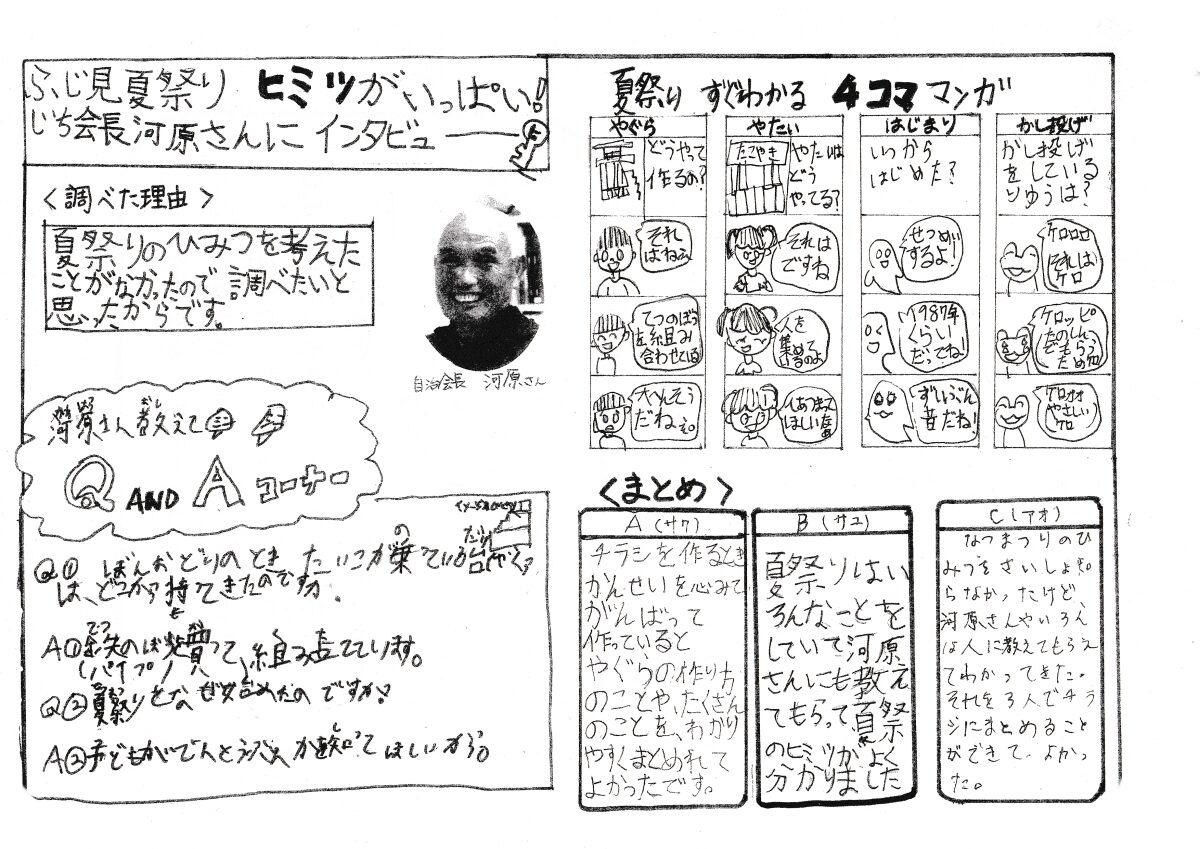 ふじ見夏祭り ヒミツがいっぱい!
じち会長河原さんにインタビュー
<調べた理由>
夏祭りのひみつを考えた
ことがなかったので調べたいと
思ったからです。
自治会長 河原さん
河原さん教えて
Q AND A コーナー
Q① ぼんおどりのとき たいこが乗っている台(やぐら)
は、どこから持ってきたのですか。
A① 鉄のぼうを買って、組み立てています。
(パイプ)
Q② 夏祭りをなぜ始めたのですか?
A② 子どもがいでんとうを
知ってほしいから。
夏祭り すぐわかる 4コママンガ
やぐら
どうやって
作るの?
それ
はねぇ
てつのぼう
を組み
合わせてる
大へんそう
だねぇ。
やたい
たこやき
やたいは
どう
やってる?
それは
ですね
人を
集めて
るのよ
はじまり
いつから
はじめた?
せつめい
するよ!
1987年
くらい
だってね!
ずいぶん
昔だね!
かし投げ
かし投げ
をしている
りゆうは?
ケロロロ
それは
ケロ
ケロッピ
たのしんで
もらう
ため
ケロオオ
やさしい
ケロ
<まとめ>
A(サク)
チラシを作るとき
かんせいを心みて
がんばって
作っていると
やぐらの作り方
のことや、たくさん
のことを、わかり
やすくまとめれて
よかったです。
B(サユ)
夏祭りはい
ろんなことを
していて河原
さんにも教え
てもらって夏祭
のヒミツがよく
分かりました
C(アオ)
なつまつりのひ
みつをさいしょ知
らなかったけど、
河原さんやいろん
な人に教えてもらえ
てわかってきた。
それを3人でチラ
シにまとめること
ができて、よかっ
た。